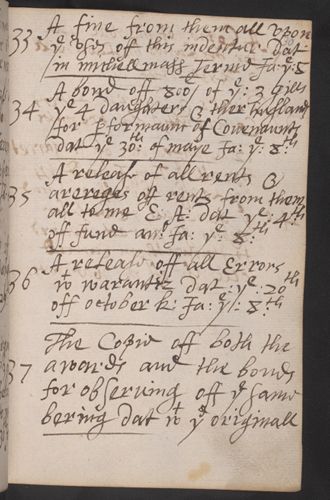 33 A fine from them all upon
ye uses off this indenture Dat
in michellmass Terme Ja: ye: 8
A bond off 800l of ye: 3 Gills
34 ye 4 daughters & ther husbands
for pformaunc of Covenaunts
dat ye 30: of maye Ja: ye: 8:th
A release of all rents &
35 arereges off rents from them
all to me E. A: dat ye: 4th
off June an: Ja: ye: 8:th
A release off all Errors
36 wt warants dat: ye: 20th
off october k: Ja: ye: 8:th
The Copie off both the
37 awards and the bonds
for observing off ye same
bering dat wt ye originall